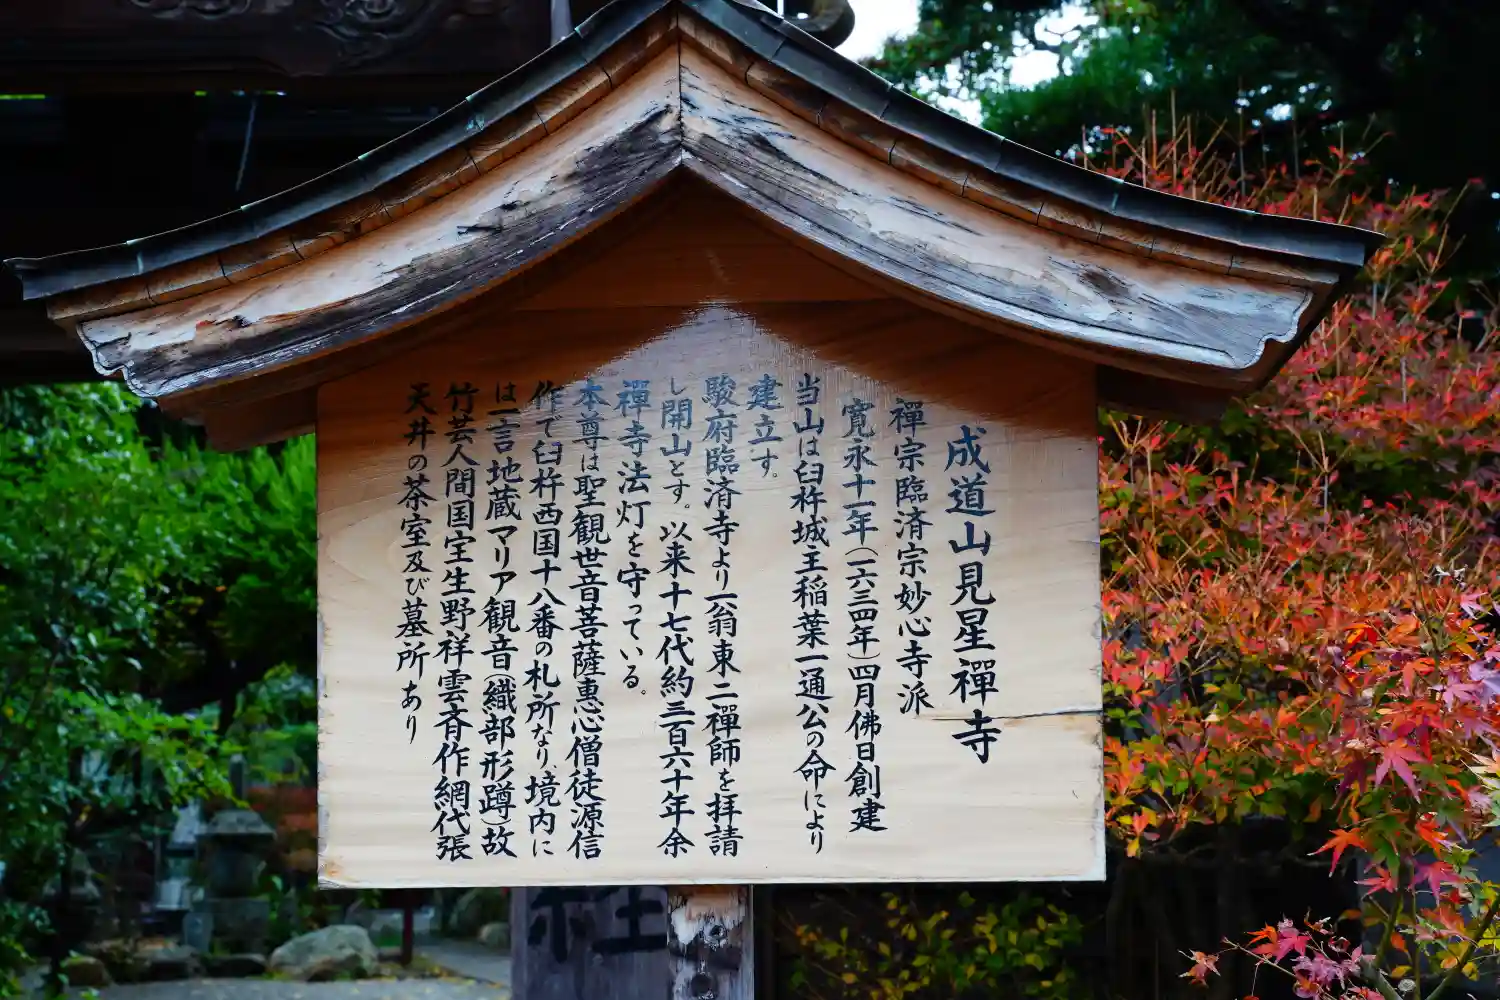 成道山見星禪寺
禪宗臨済宗妙心寺派
寛永十一年(一六三四年)四月佛日創建
当山は臼杵城主稲葉一通公の命により
建立す。
駿府臨済寺より一翁東二禪師を拝請
し開山とす。以来十七代約三百六十年余
禪寺法灯を守っている。
本尊は聖観世音菩薩恵心僧徒源信
作で臼杵西国十八番の札所なり、境内に
は一言地蔵マリア観音(織部形蹲)故
竹芸人間国宝生野祥雲斉作網代張
天井の茶室及び墓所あり